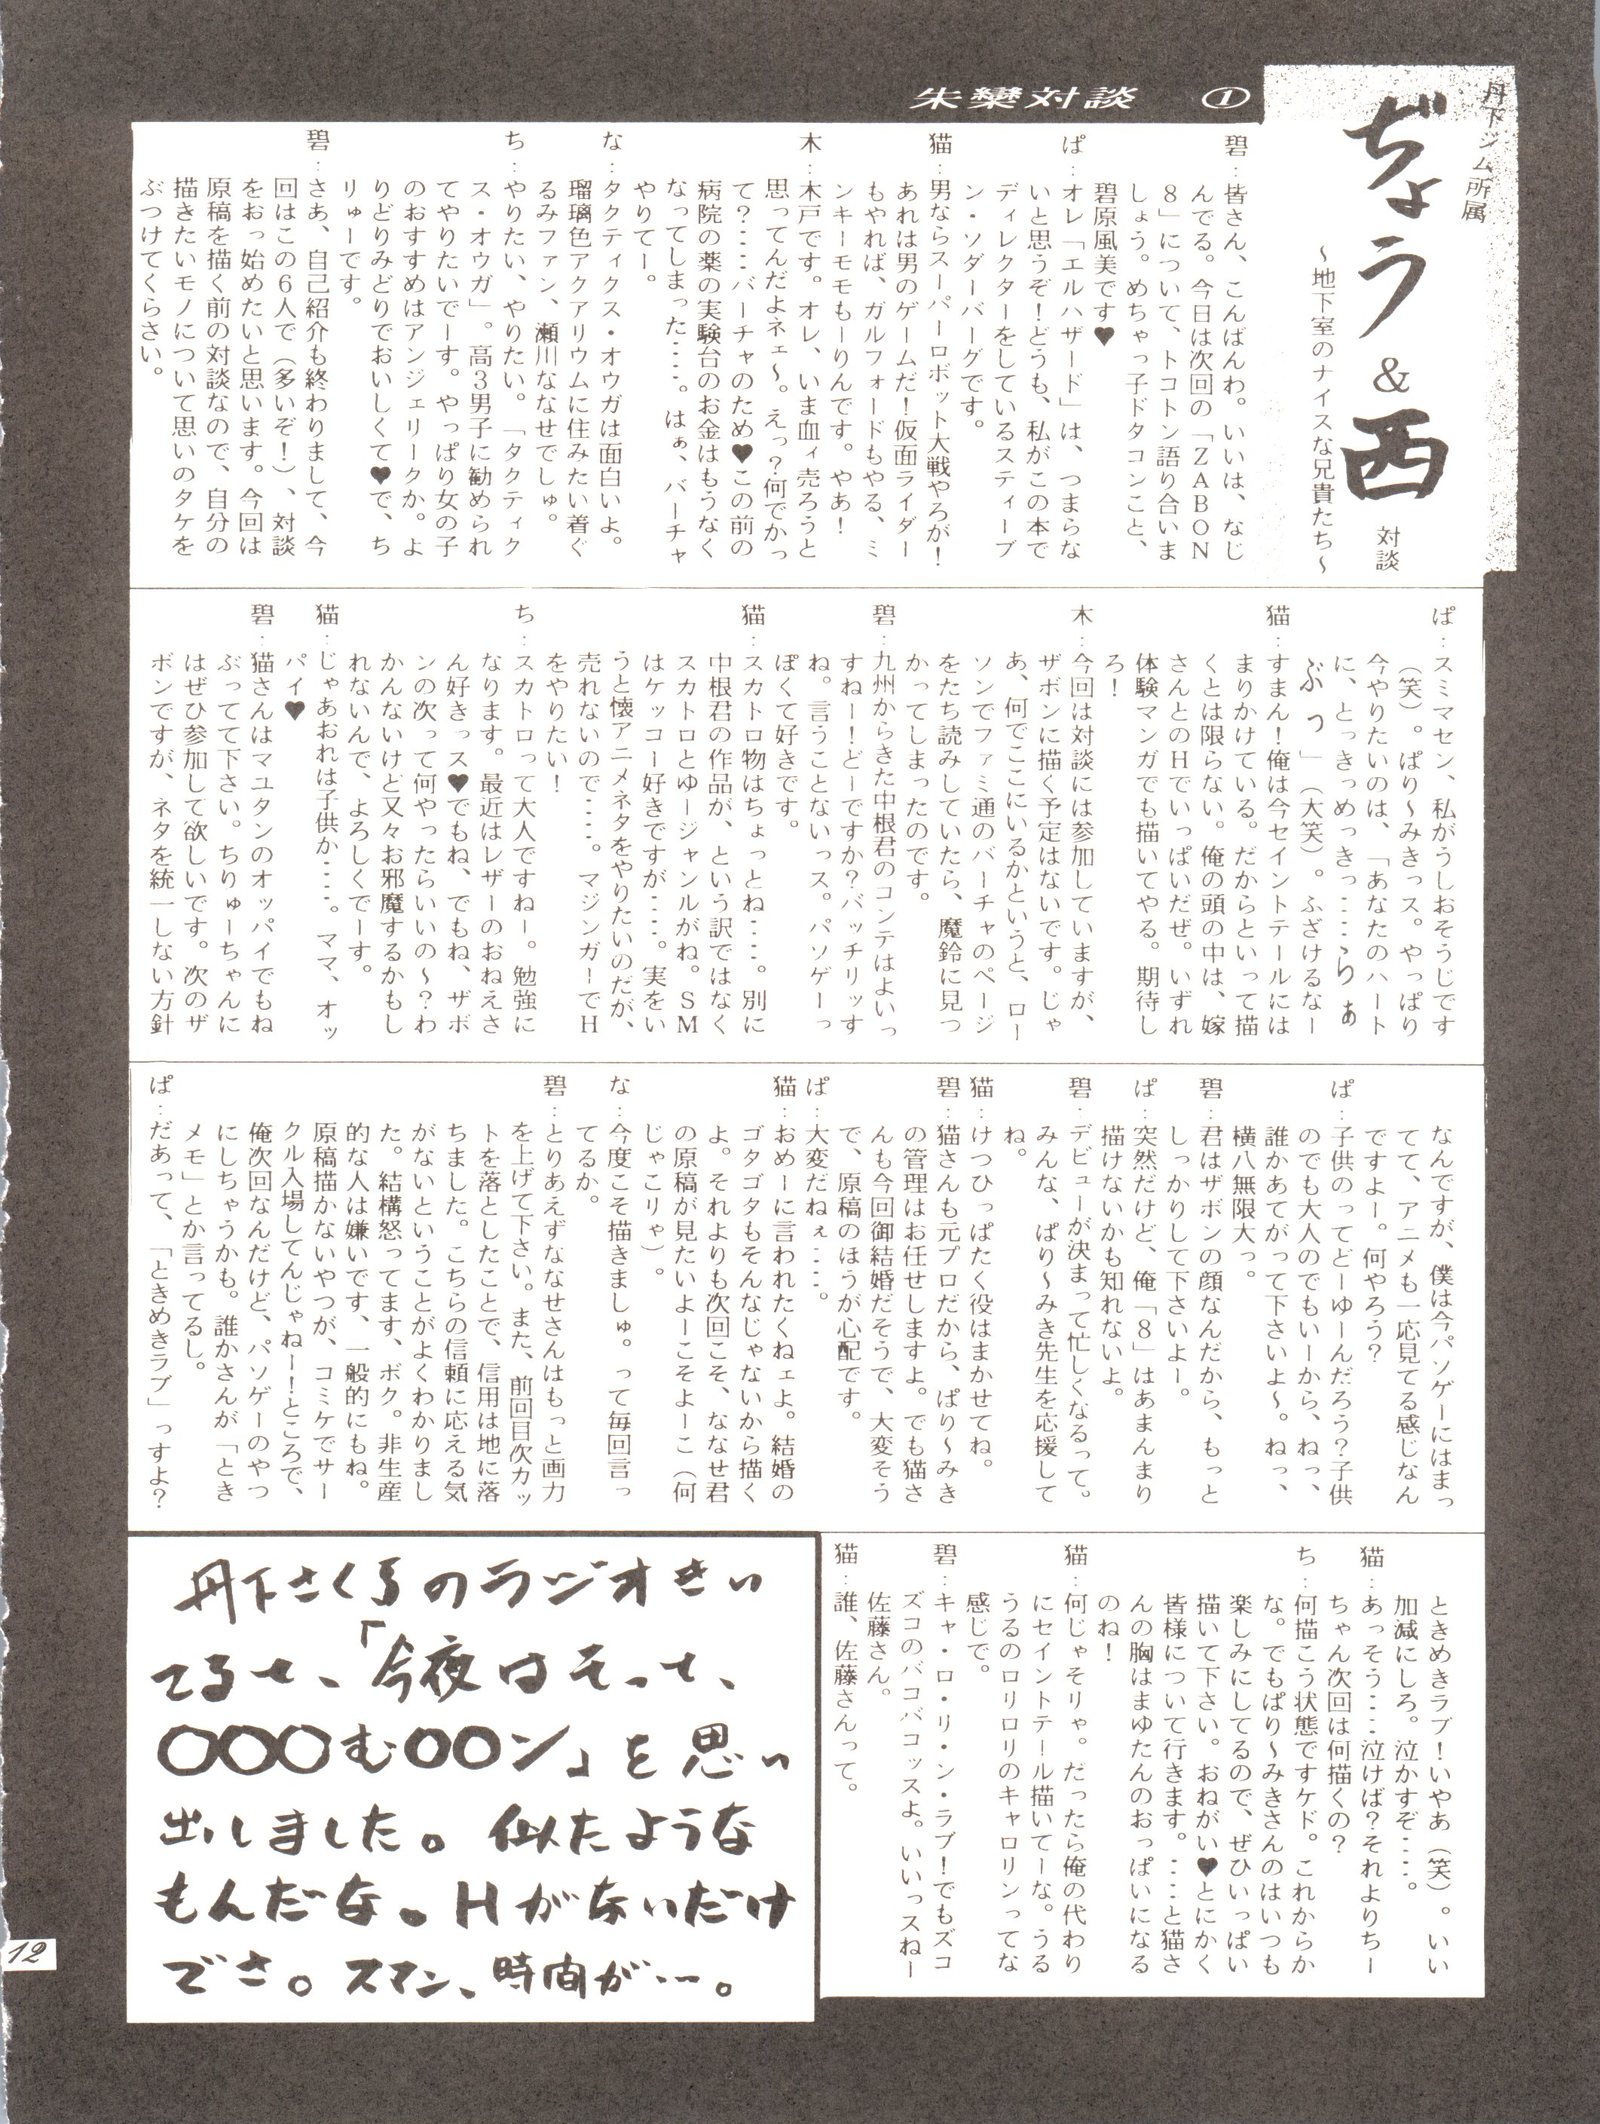 朱欒対談 ①
丹下ジム所属
ぢょう&西
対談
～地下室のナイスな兄貴たち～
碧：皆さん、こんばんわ。いいは、なじ
んでる。今日は次回の「ZABON
8」について、トコトン語り合いま
しょう。めちゃっ子ドタコンこと、
碧原風美です♥
ぱ：オレ「エルハザード」は、つまらな
いと思うぞ！どうも、私がこの本で
ディレクターをしているスティーブ
ン・ソダーバーグです。
猫：男ならスーパーロボット大戦やろが！
あれは男のゲームだ！仮面ライダー
もやれば、ガルフォードもやる、ミ
ンキーモモもーりんです。やあ！
木：木戸です。オレ、いま血ィ売ろうと
思ってんだよネェ～。えっ？何でかっ
て？‥‥バーチャのため♥この前の
病院の薬の実験台のお金はもうなく
なってしまった‥‥。はぁ、バーチャ
やりてー。
な：タクティクス・オウガは面白いよ。
瑠璃色アクアリウムに住みたい着ぐ
るみファン、瀬川ななせでしゅ。
ち：やりたい、やりたい。「タクティク
ス・オウガ」。高3男子に勧められ
てやりたいでーす。やっぱり女の子
のおすすめはアンジェリークか。よ
りどりみどりでおいしくて♥で、ち
りゅーです。
碧：さあ、自己紹介も終わりまして、今
回はこの6人で（多いぞ！）、対談
をおっ始めたいと思います。今回は
原稿を描く前の対談なので、自分の
描きたいモノについて思いのタケを
ぶつけてくらさい。
ぱ：スミマセン、私がうしおそうじです
（笑）。ぱり～みきっス。やっぱり
今やりたいのは、「あなたのハート
に、とっきっめっきっ‥‥らぁ
ぶっ」（大笑）。ふざけるなー
猫：すまん！俺は今セイントテールには
まりかけている。だからといって描
くとは限らない。俺の頭の中は、嫁
さんとのHでいっぱいだぜ。いずれ
体験マンガでも描いてやる。期待し
ろ！
木：今回は対談には参加していますが、
ザボンに描く予定はないです。じゃ
あ、何でここにいるかというと、ロー
ソンでファミ通のバーチャのページ
をたち読みしていたら、魔鈴に見つ
かってしまったのです。
碧：九州からきた中根君のコンテはよいっ
すねー！どーですか？バッチリッす
ね。言うことないっス。パソゲーっ
ぽくて好きです。
猫：スカトロ物はちょっとね‥‥。別に
中根君の作品が、という訳ではなく
スカトロとゆージャンルがね。SM
はケッコー好きですが‥‥。実をい
うと懐アニメネタをやりたいのだが、
売れないので‥‥。マジンガーでH
をやりたい！
ち：スカトロって大人ですねー。勉強に
なります。最近はレザーのおねえさ
ん好きっス♥でもね、でもね、ザボ
ンの次って何やったらいいの～？わ
かんないけど又々お邪魔するかもし
れないんで、よろしくでーす。
猫：じゃあおれは子供か‥‥。ママ、オッ
パイ♥
碧：猫さんはマユタンのオッパイでもね
ぶってて下さい。ちりゅーちゃんに
はぜひ参加して欲しいです。次のザ
ボンですが、ネタを統一しない方針
なんですが、僕は今パソゲーにはまっ
てて、アニメも一応見てる感じなん
ですよー。何やろう？
ぱ：子供のってどーゆーんだろう？子供
のでも大人のでもいーから、ねっ、
誰かあてがって下さいよ～。ねっ、
横八無限大っ。
碧：君はザボンの顔なんだから、もっと
しっかりして下さいよー。
ぱ：突然だけど、俺「8」はあまんまり
描けないかも知れないよ。
碧：デビューが決まって忙しくなるって。
みんな、ぱり～みき先生を応援して
ね。
猫：けつひっぱたく役はまかせてね。
碧：猫さんも元プロだから、ぱり～みき
の管理はお任せしますよ。でも猫さ
んも今回御結婚だそうで、大変そう
で、原稿のほうが心配です。
ぱ：大変だねぇ‥‥。
猫：おめーに言われたくねェよ。結婚の
ゴタゴタもそんなじゃないから描く
よ。それよりも次回こそ、ななせ君
の原稿が見たいよーこそよーこ（何
じゃこりゃ）。
な：今度こそ描きましゅ。って毎回言っ
てるか。
碧：とりあえずななせさんはもっと画力
を上げて下さい。また、前回目次カッ
トを落としたことで、信用は地に落
ちました。こちらの信頼に応える気
がないということがよくわかりまし
た。結構怒ってます、ボク。非生産
的な人は嫌いです、一般的にもね。
原稿描かないやつが、コミケでサー
クル入場してんじゃねー！ところで、
俺次回なんだけど、パソゲーのやつ
にしちゃうかも。誰かさんが「とき
メモ」とか言ってるし。
ぱ：だあって、「ときめきラブ」っすよ？
ときめきラブ！いやあ（笑）。いい
加減にしろ。泣かすぞ‥‥。
猫：あっそう‥‥泣けば？それよりちー
ちゃん次回は何描くの？
ち：何描こう状態ですケド。これからか
な。でもぱり～みきさんのはいつも
楽しみにしてるので、ぜひいっぱい
描いて下さい。おねがい♥とにかく
皆様について行きます。‥‥と猫さ
んの胸はまゆたんのおっぱいになる
のね！
猫：何じゃそりゃ。だったら俺の代わり
にセイントテール描いてーな。うる
うるのロリロリのキャロリンってな
感じで。
碧：キャ・ロ・リ・ン・ラブ！でもズコ
ズコのバコバコッスよ。いいっスねー
佐藤さん。
猫：誰、佐藤さんって。
丹下さくらのラジオきい
てるせ、「今夜はそっと、
〇〇〇む〇〇ン」を思い
出しました。似たような
もんだな。Hがないだけ
でさ。スマン、時間が‥‥。
12